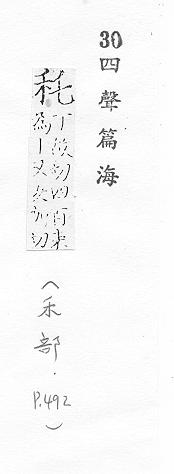 30四聲篇海
秅
丁故切四百束
為丨又加切
(禾部. P.492)